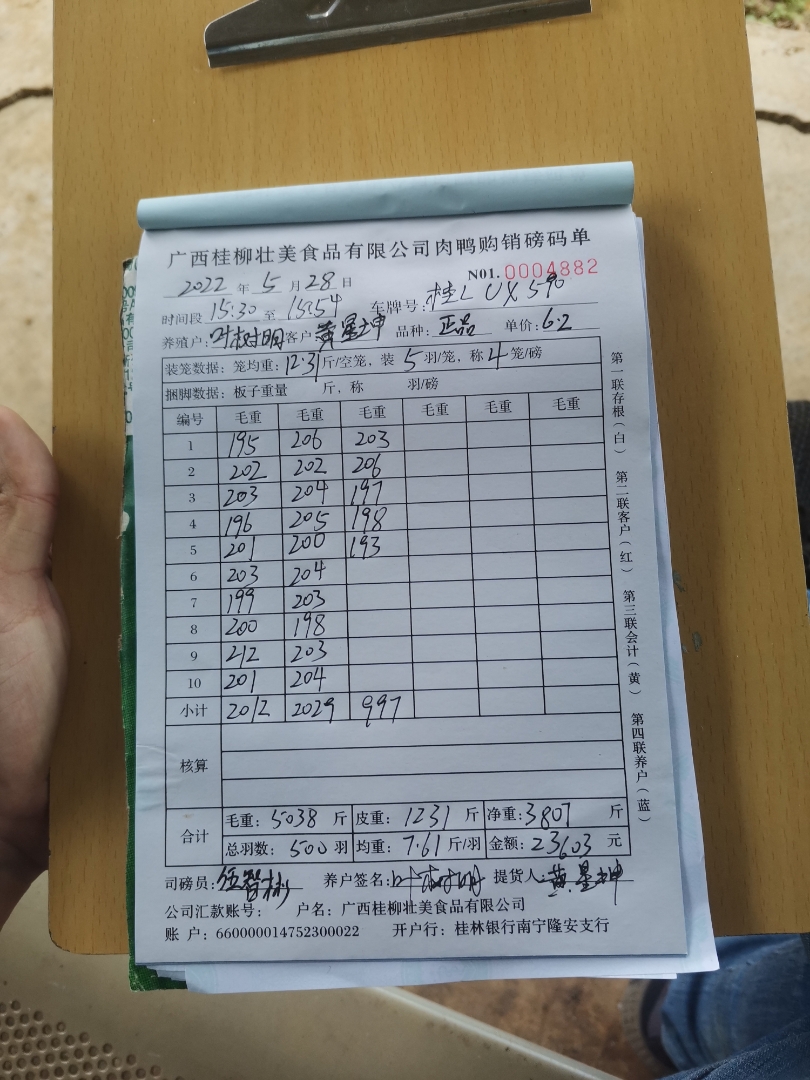 广西桂柳壮美食品有限公司肉鸭购销磅码单
2022 年 5 月 28 日 N01. 0004882
时间段 15:30 至 15:54 车牌号: 桂L UX590
养殖户: 叶树明 客户 黄星坤 品种: 正品 单价: 6.2
装笼数据: 笼均重: 12.31 斤/空笼, 装 5 羽/笼, 称 4 笼/磅
捆脚数据: 板子重量 斤, 称 羽/磅
编号 毛重 毛重 毛重 毛重 毛重 毛重
1 195 206 203
2 202 202 206
3 203 204 197
4 196 205 198
5 201 200 193
6 203 204
7 199 203
8 200 198
9 212 203
10 201 204
小计 2012 2029 997
核算
合计
毛重: 5038 斤 皮重: 1231 斤 净重: 3807 斤
总羽数: 500 羽 均重: 7.61 斤/羽 金额: 23603 元
司磅员: 伍智彬 养户签名: 叶树明 提货人: 黄星坤
公司汇款账号: 户名: 广西桂柳壮美食品有限公司
账 户: 660000014752300022 开户行: 桂林银行南宁隆安支行
第一联存根(白) 第二联客户(红) 第三联会计(黄) 第四联养户(蓝)